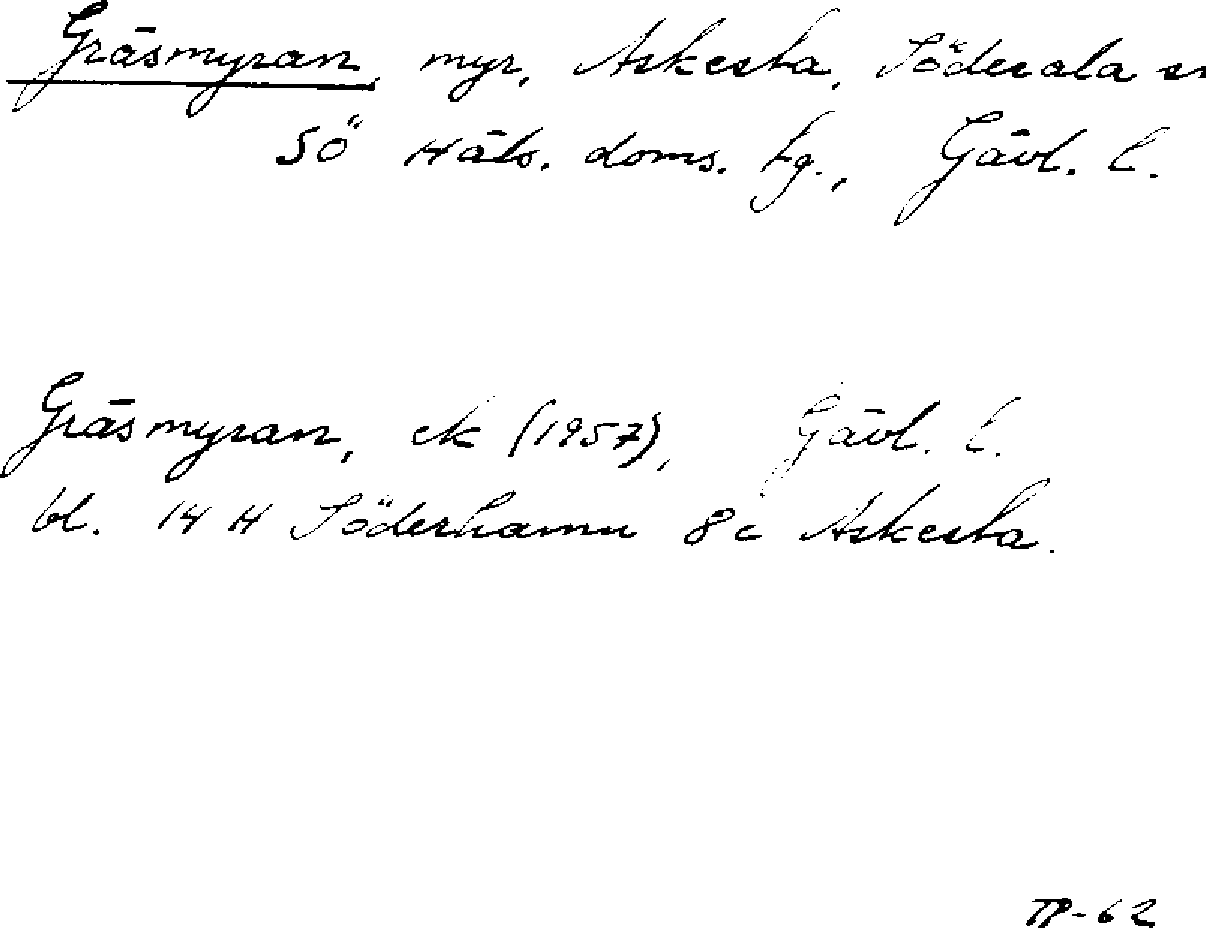 Gräsmyran, myr, Askesta, Söderala sn
SÖ Häls. doms. tg., Gävl. l.
Gräsmyran, ek (1957), Gävl. l.
bl. 14 H Söderhamn 8c Askesta.
TP-62